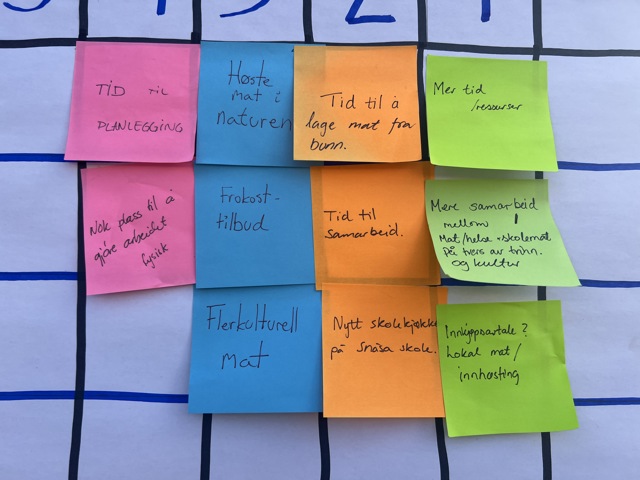 TID TIL
PLANLEGGING
Høste
mat i
naturen
Tid til å
lage mat fra
bunn.
Mer tid
/ressurser
Nok plass til å
gjøre arbeidet
fysisk
Frokost-
tilbud
Tid til
samarbeid.
Mere samarbeid
mellom
Mat/helse + skolemat
på tvers av trinn.
og kultur
Flerkulturell
mat
Nytt skolekjøkke
på Snåsa skole.
Innkjøpsavtale?
Lokal mat/
innhøsting